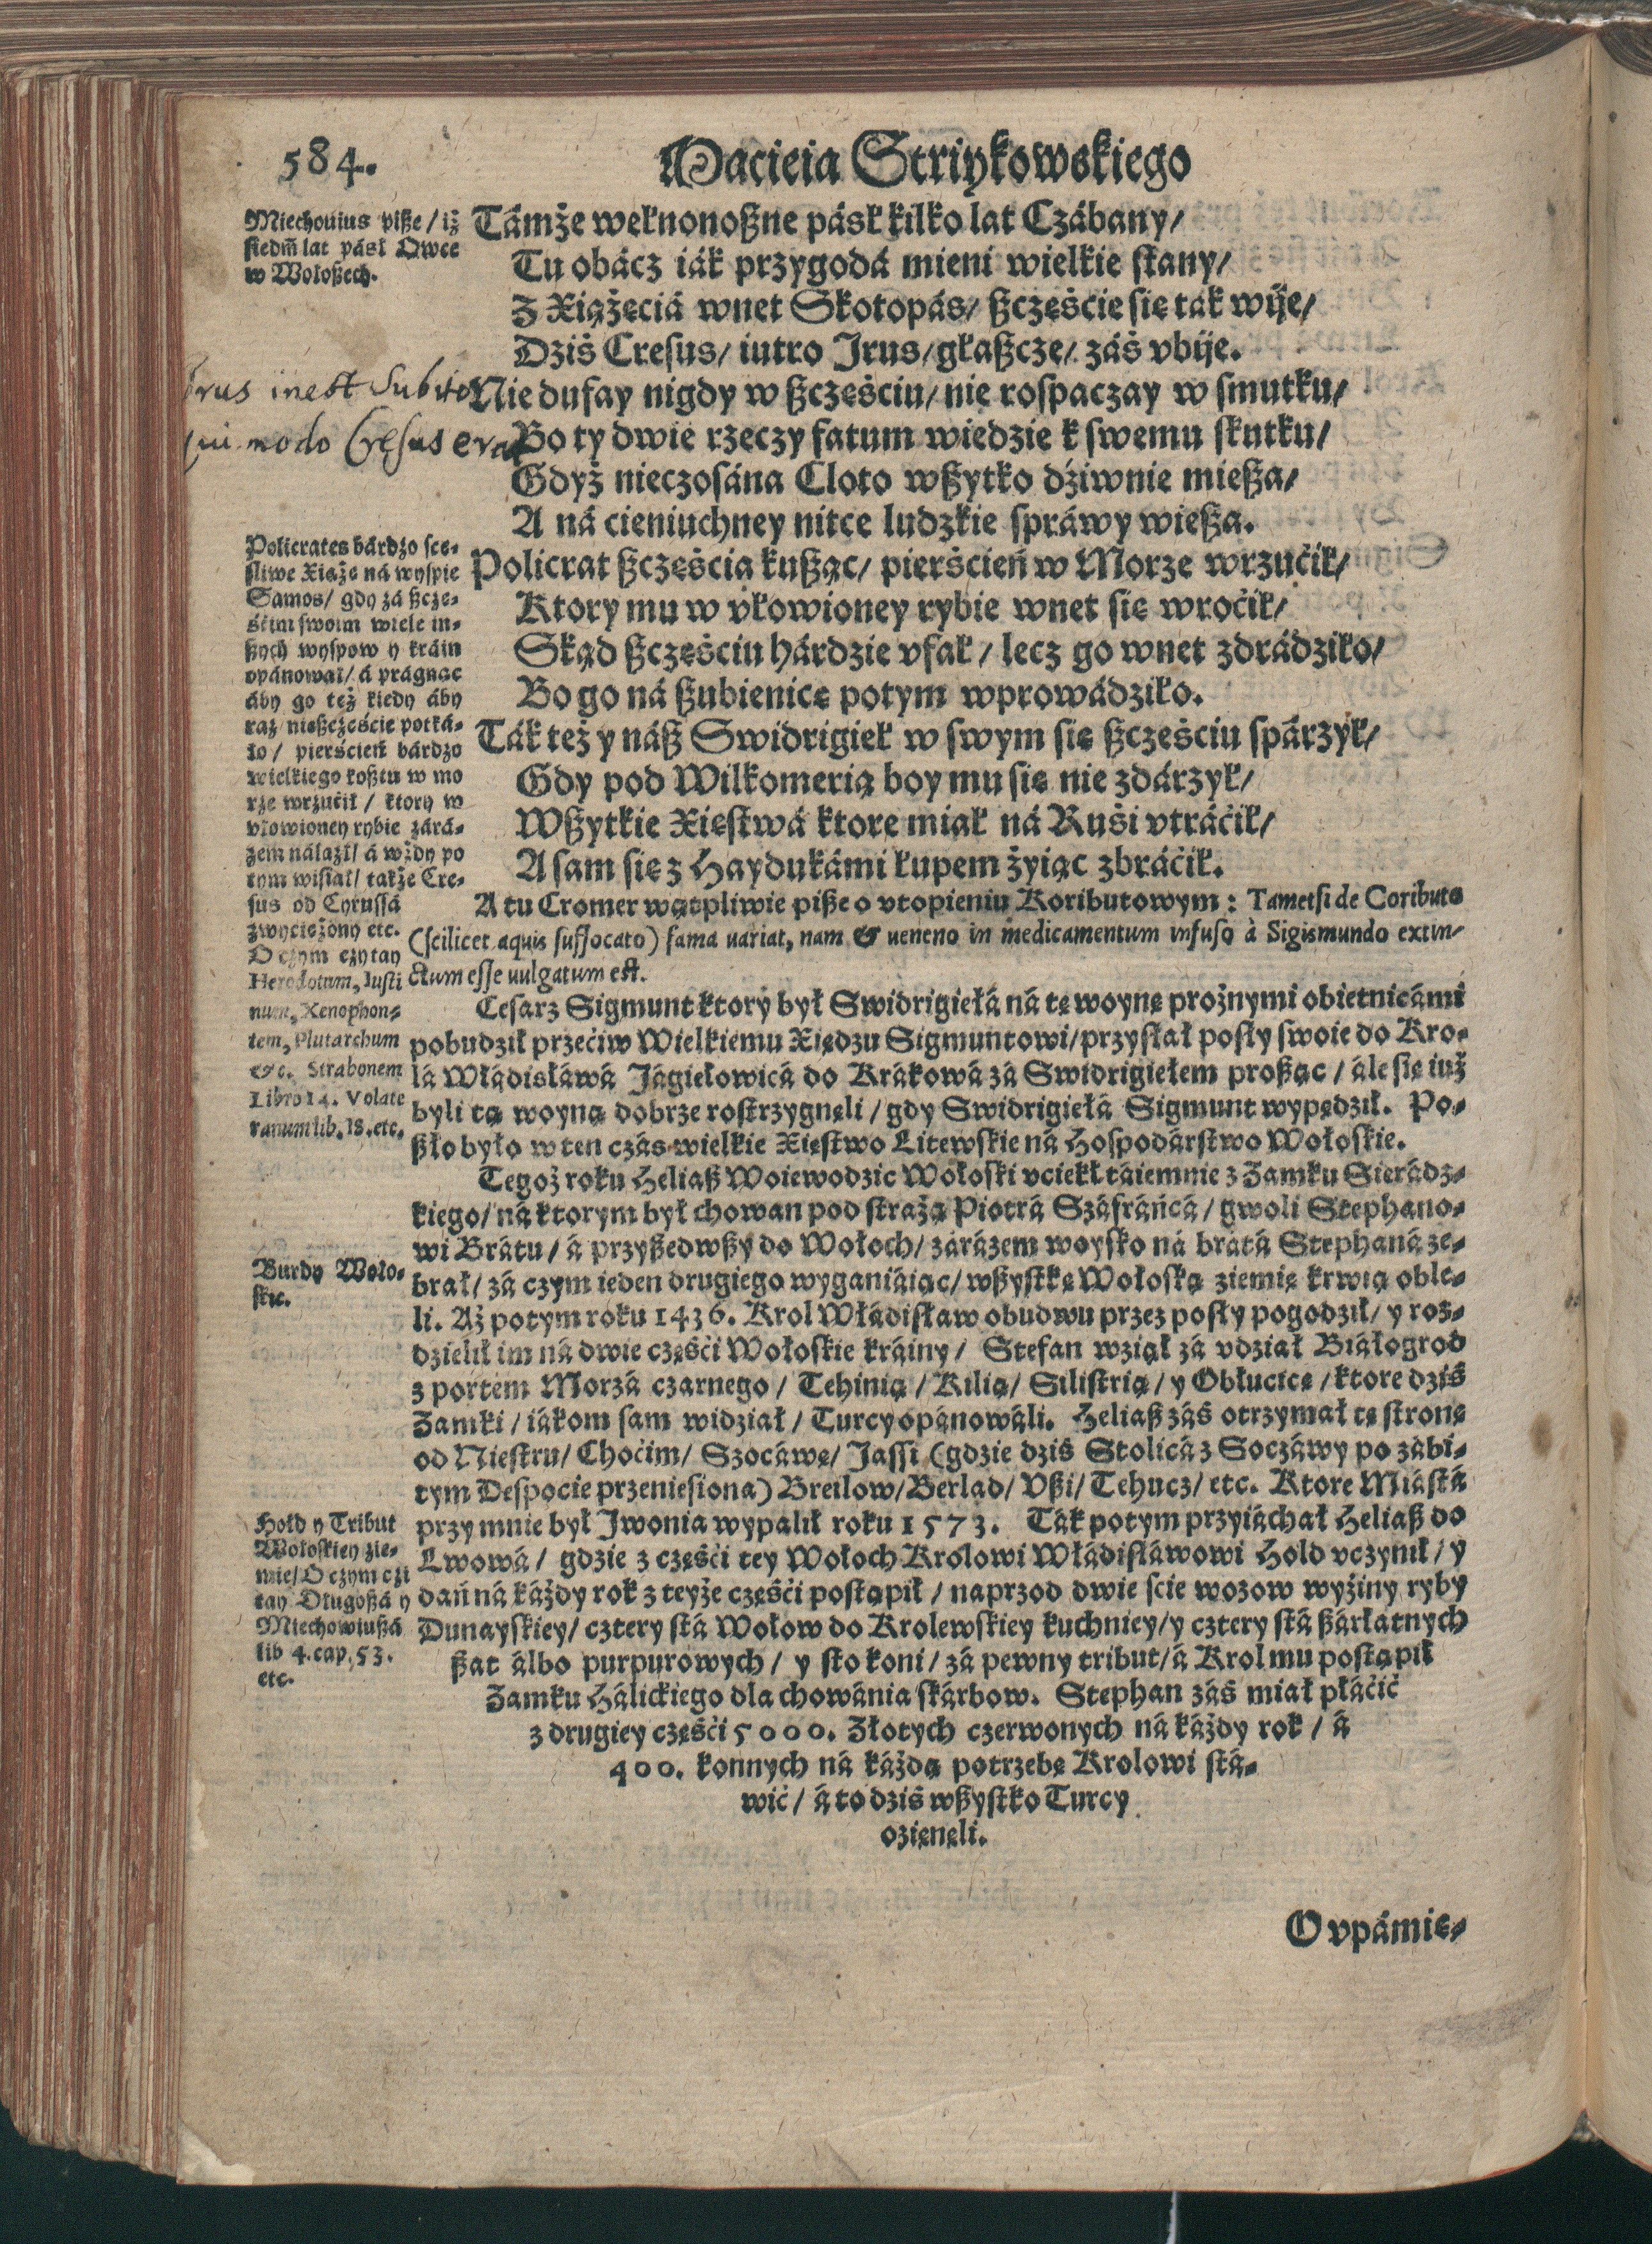 584.
Macieia Striykowskiego
Miechouius pisze / iż
siedḿ lat pásł Owce
w Wołoszech.
Támże wełnonoszne pásł kilko lat Czábany /
Tu obácz iák przygodá mieni wielkie stany /
Z Xiążęciá wnet Skotopás / szczęście się ták wije /
Dziś Cresus / iutro Irus / głaszcze / záś vbije.
Irus inest subito
qui modo Cresus erat
Nie dufay nigdy w szczęściu / nie rospaczay w smutku /
Bo ty dwie rzeczy fatum wiedzie k swemu skutku /
Gdyż nieczosána Cloto wszytko dźiwnie miesza /
A ná cieniuchney nitce ludzkie spráwy wiesza.
Policrates bárdzo sce-
śliwe Xiąże ná wyspie
Samos / gdy zá szcze-
ścim swoim wiele in-
szych wyspow y kráin
opánował / á prágnąc
áby go też kiedy áby
raz nieszczęście potká-
ło / pierścień bárdzo
wielkiego kosztu w mo
rze wrzucił / ktory w
vłowioney rybie zárá-
zem nálazł / á wżdy po
tym wisiał / także Cre-
sus od Cyrussá
zwyciężony etc.
O czym czytay
Herodotum, Iusti
num, Xenophon-
tem, Plutarchum
&c. Strabonem
Libro 14. Volate
ranum lib. 18. etc.
Policrat szczęścia kusząc / pierścień w Morze wrzućił /
Ktory mu w vłowioney rybie wnet się wroćił /
Skąd szczęściu hárdzie vfał / lecz go wnet zdrádziło /
Bo go ná szubienicę potym wprowádziło.
Ták też y nász Swidrigieł w swym się szczęściu spárzył /
Gdy pod Wilkomerią boy mu się nie zdárzył /
Wszytkie Xięstwá ktore miał ná Ruśi vtráćił /
A sam się z Haydukámi łupem żyiąc zbráćił.
A tu Cromer wątpliwie pisze o vtopieniu Koributowym : Tametsi de Coributo
(scilicet aquis suffocato) fama uariat, nam & ueneno in medicamentum infuso à Sigismundo extin-
ctum esse uulgatum est.
Cesarz Sigmunt ktory był Swidrigiełá ná tę woynę prożnymi obietnicámi
pobudził przećiw Wielkiemu Xiędzu Sigmuntowi / przysłał posły swoie do Kro-
lá Włádisłáwá Jágiełowicá do Krákowá zá Swidrigiełem prosząc / ále się iuż
byli tą woyną dobrze rostrzygnęli / gdy Swidrigiełá Sigmunt wypędził. Po-
szło było w ten czás wielkie Xięstwo Litewskie ná Hospodárstwo Wołoskie.
Tegoż roku Heliasz Woiewodzic Wołoski vciekł táiemnie z Zamku Sierádz-
kiego / ná ktorym był chowan pod strażą Piotrá Száfráńcá / gwoli Stephano-
wi Brátu / á przyszedwszy do Wołoch / zárázem woysko ná brátá Stephaná ze-
brał / zá czym ieden drugiego wyganiáiąc / wszystkę Wołoską ziemię krwią oble-
li. Aż potym roku 1436. Krol Włádisław obudwu przez posły pogodził / y roz-
dzielił im ná dwie częśći Wołoskie kráiny / Stefan wziął zá vdział Białogrod
z portem Morzá czarnego / Tehinią / Kilią / Silistrią / y Obłucicę / ktore dziś
Zamki / iákom sam widział / Turcy opánowáli. Heliasz záś otrzymał tę stronę
od Niestru / Choćim / Szocáwę / Jassi (gdzie dziś Stolicá z Soczáwy po zábi-
tym Despocie przeniesiona) Breilow / Berlad / Vszi / Tehucz / etc. Ktore Miástá
przy mnie był Iwonia wypalił roku 1573. Ták potym przyiáchał Heliasz do
Lwowá / gdzie z częśći tey Wołoch Krolowi Włádisłáwowi Hołd vczynił / y
dań ná káżdy rok z teyże częśći postąpił / naprzod dwie scie wozow wyziny ryby
Dunayskiey / cztery stá Wołow do Krolewskiey kuchniey / y cztery stá szárłatnych
szat álbo purpurowych / y sto koni / zá pewny tribut / á Krol mu postąpił
Zamku Hálickiego dla chowánia skárbow. Stephan záś miał płáćić
z drugiey częśći 5000. Złotych czerwonych ná káżdy rok / á
400. konnych ná káżdą potrzebę Krolowi stá-
wić / á to dziś wszystko Turcy
ozięnęli.
Burdy Woło-
skie.
Hołd y Tribut
Wołoskiey zie-
mie / O czym czi
tay Długoszá y
Miechowiuszá
lib 4. cap. 53.
etc.
O vpámię-